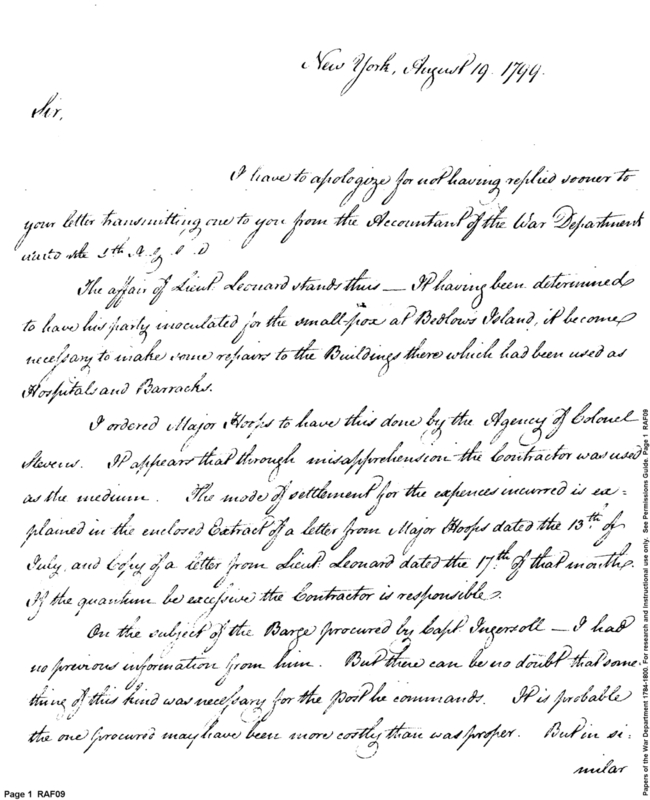 New York, August 19. 1799.
Sir,
I have to apologize for not having replied sooner to
your letter transmitting one to you from the Accountant of the War Department
The affair of Lieut. Leonard stands thus — It having been determined
to have his party inoculated for the small-pox at Bedlows Island, it became
necessary to make some repairs to the Buildings there which had been used as
Hospitals and Barracks.
I ordered Major Hoops to have this done by the Agency of Colonel
Stevens. It appears that through misapprehension the Contractor was used
as the medium. The mode of settlement for the expences incurred is ex=
plained in the enclosed Extract of a letter from Major Hoops dated the 13th. of
July and Copy of a letter from Lieut. Leonard dated the 17th. of that month.
If the quantum be excessive the Contractor is responsible.
On the subject of the Barge procured by Capt. Ingersoll — I had
no previous information from him. But there can be no doubt that some
thing of this kind was necessary for the post he commands. It is probable
the one procured may have been more costly than was proper. But in si=
milar
Page 1 RAF09
Papers of the War Department 1784-1800. For research and instructional use only. See Permissions Guide. Page 1 RAF09